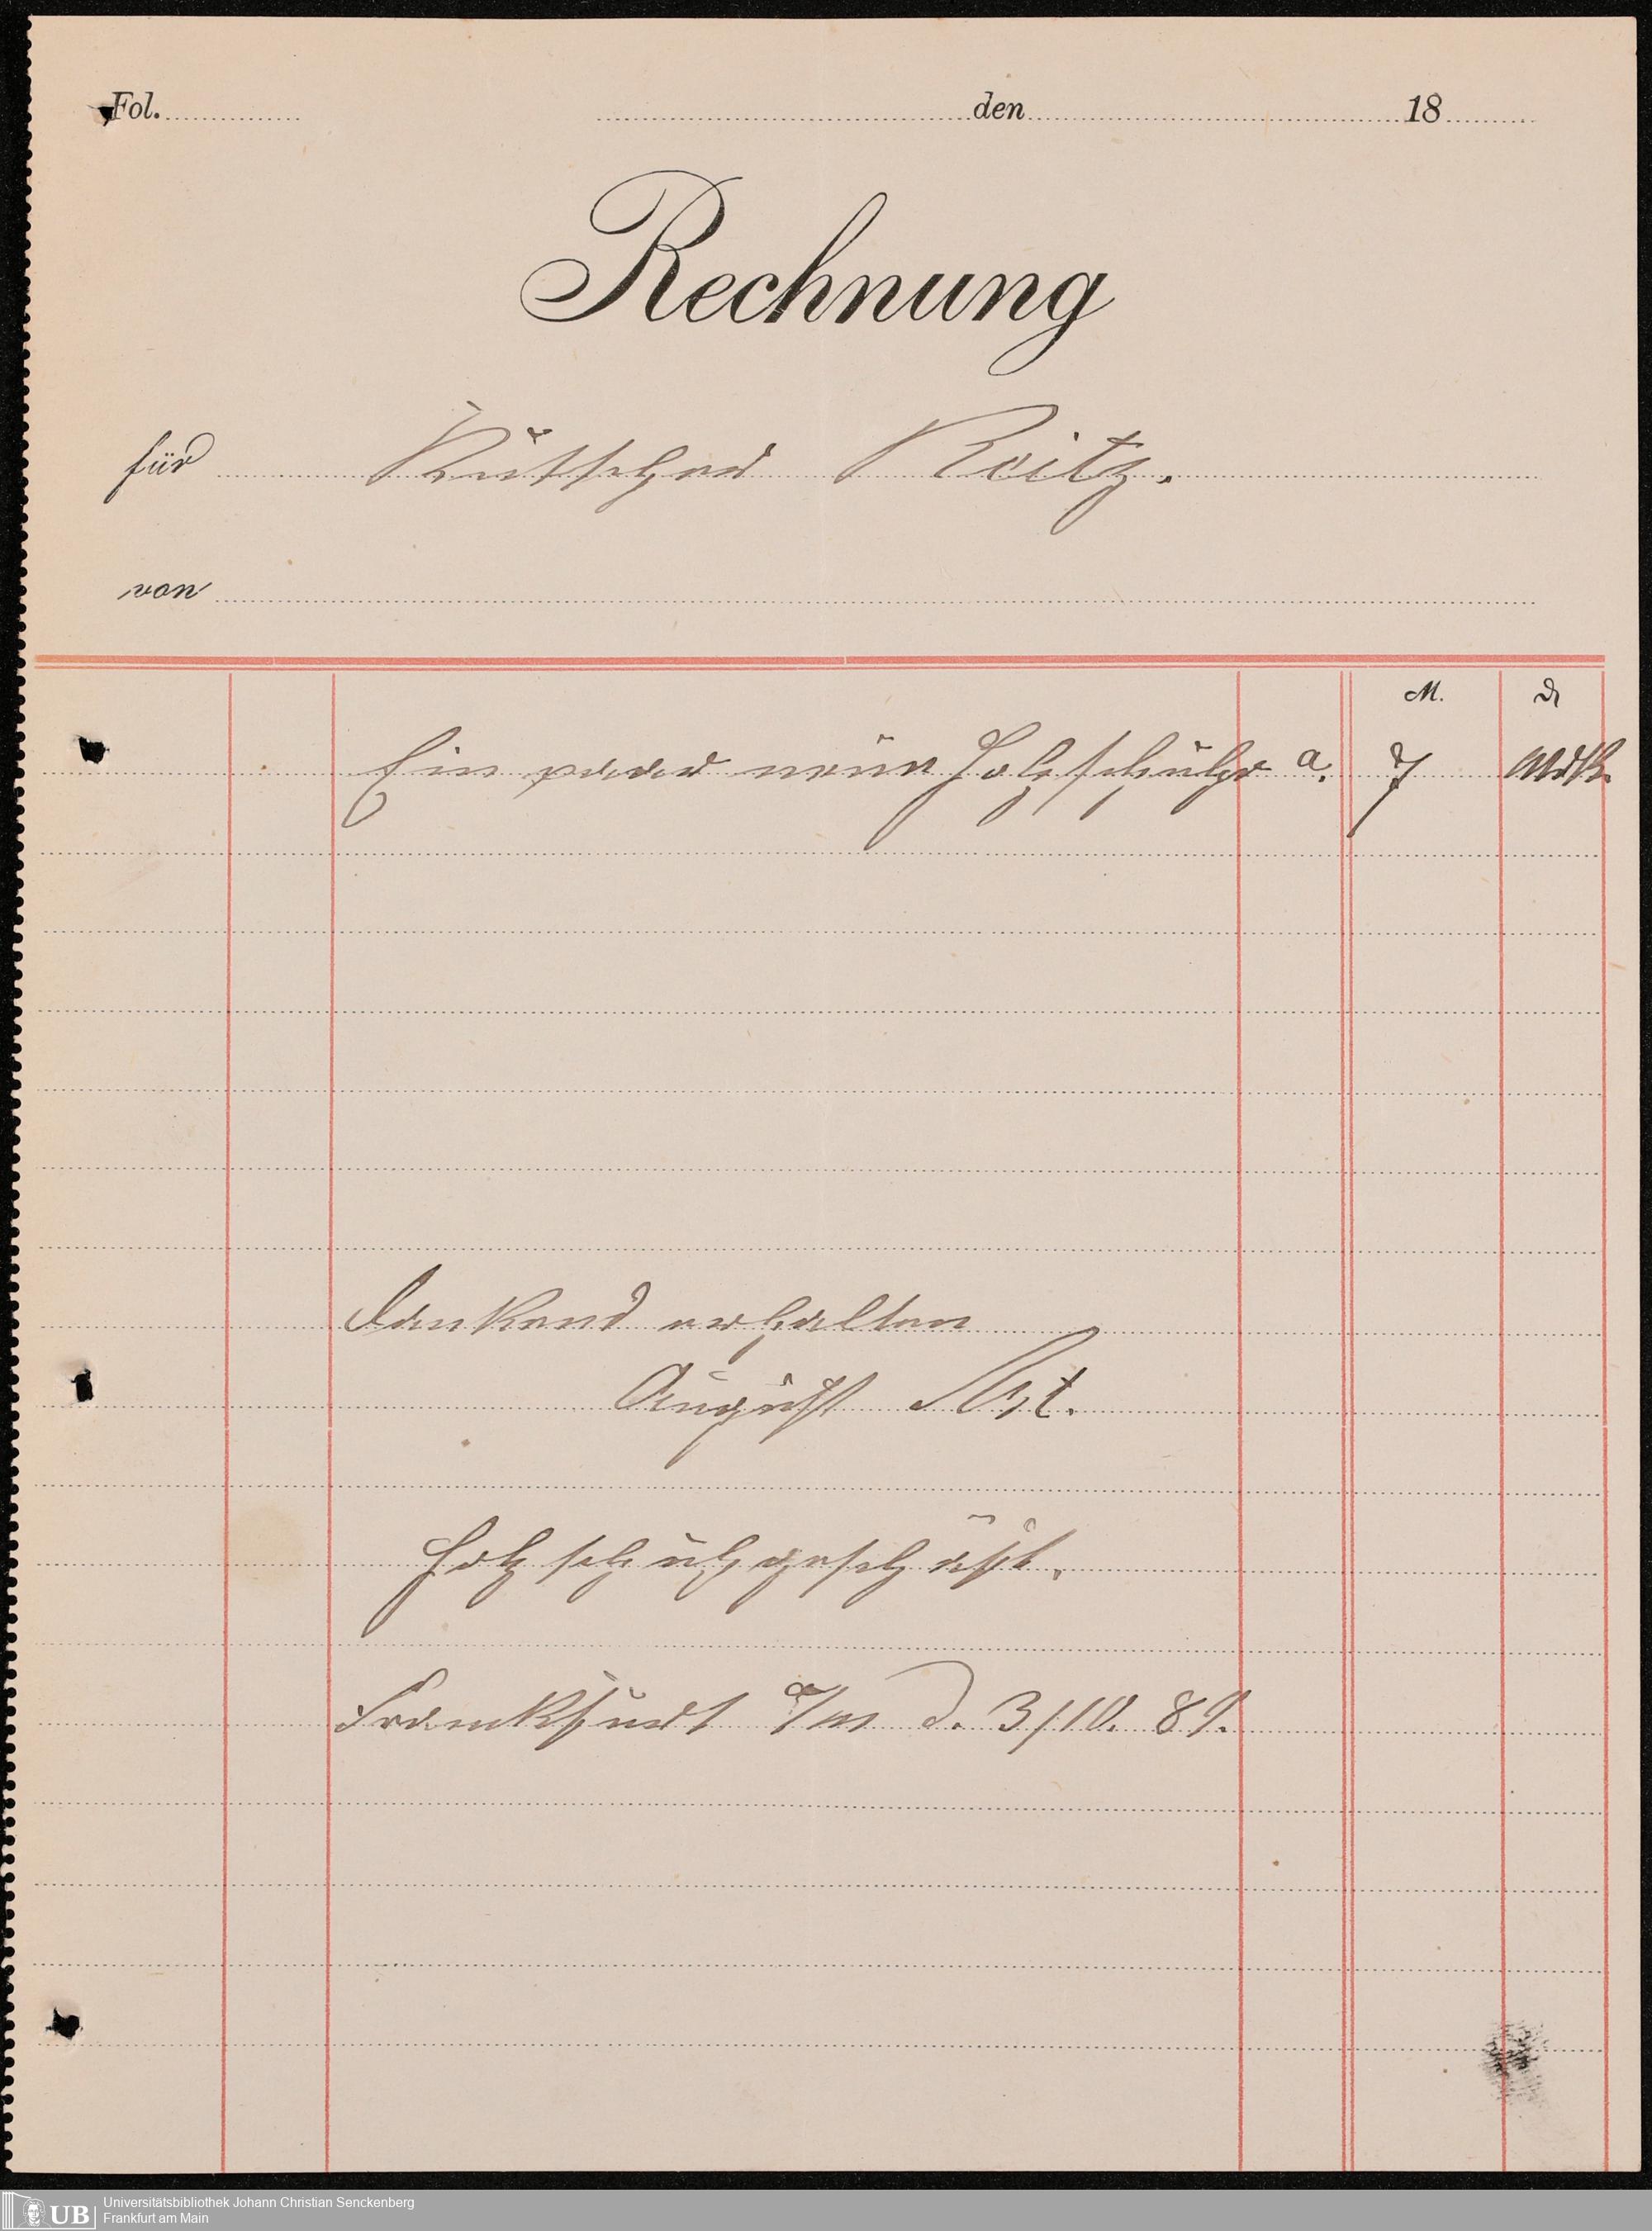 Fol. den 18
Rechnung
für Kutscher Reitz.
von
M. ₰
Ein paar neue Holzschuhe a. 7 Mk.
Dankend erhalten
August
Holzschuhgeschäft.
Frankfurt a/m d. 3/10. 89.
UB
Universitätsbibliothek Johann Christian Senckenberg
Frankfurt am Main